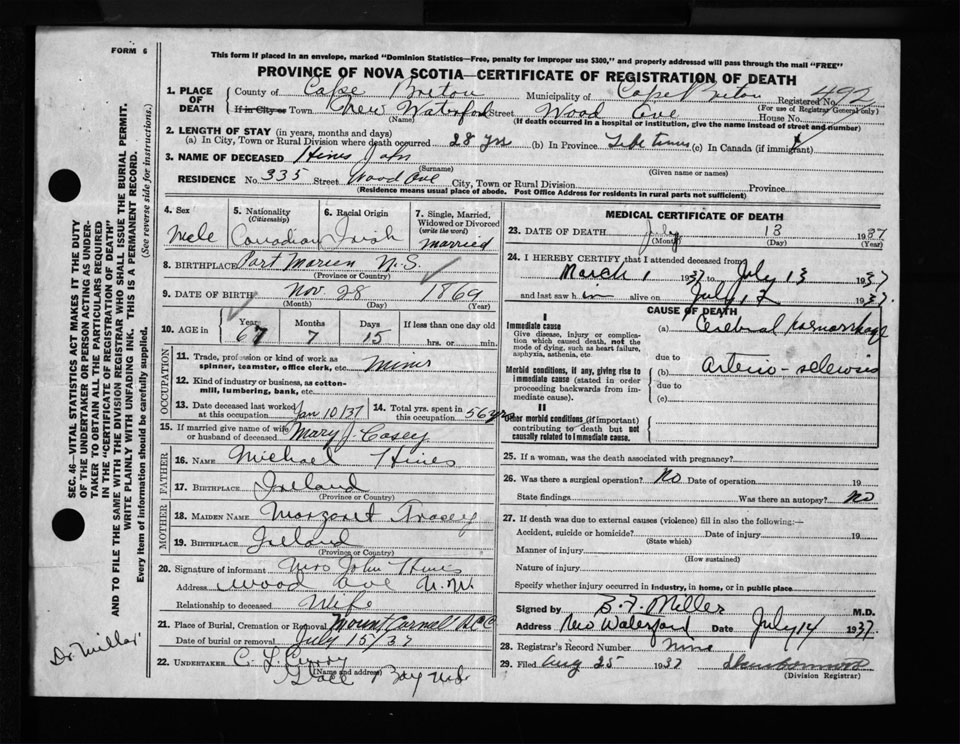 FORM 6
This form if placed in an envelope, marked "Dominion Statistics—Free, penalty for improper use $300," and properly addressed will pass through the mail "FREE"
PROVINCE OF NOVA SCOTIA—CERTIFICATE OF REGISTRATION OF DEATH
1. PLACE OF DEATH
County of Cape Breton Municipality of Cape Breton Registered No. 492
(For use of Registrar General only)
If in City or Town New Waterford Street Wood Ave House No.
(Name) (If death occurred in a hospital or institution, give the name instead of street and number)
2. LENGTH OF STAY (in years, months and days)
(a) In City, Town or Rural Division where death occurred 28 yrs (b) In Province Life time (c) In Canada (if immigrant)
3. NAME OF DECEASED Hines John
(Surname) (Given name or names)
RESIDENCE No. 335 Street Wood Ave City, Town or Rural Division Province
(Residence means usual place of abode. Post Office Address for residents in rural parts not sufficient)
4. Sex Male
5. Nationality (Citizenship) Canadian
6. Racial Origin Irish
7. Single, Married, Widowed or Divorced (write the word) Married
8. BIRTHPLACE Port Morien N.S.
(Province or Country)
9. DATE OF BIRTH Nov. 28 1869
(Month) (Day) (Year)
10. AGE in Years 67 Months 7 Days 15 If less than one day old hrs. or min.
OCCUPATION
11. Trade, profession or kind of work as spinner, teamster, office clerk, etc. Miner
12. Kind of industry or business, as cotton-mill, lumbering, bank, etc.
13. Date deceased last worked at this occupation Jan 10/37
14. Total yrs. spent in this occupation 56 yrs
15. If married give name of wife or husband of deceased Mary J. Casey
FATHER
16. NAME Michael Hines
17. BIRTHPLACE Ireland
(Province or Country)
MOTHER
18. MAIDEN NAME Margaret
19. BIRTHPLACE Ireland
(Province or Country)
20. Signature of informant Mrs John Hines
Address Wood Ave N.W.
Relationship to deceased Wife
21. Place of Burial, Cremation or Removal Mount Carmel
Date of burial or removal July 15/37
22. UNDERTAKER C. L. Curry
(Name and address)
Glace Bay N.S.
MEDICAL CERTIFICATE OF DEATH
23. DATE OF DEATH July 13 1937
(Month) (Day) (Year)
24. I HEREBY CERTIFY that I attended deceased from
March 1 1937 to July 13 1937
and last saw h im alive on July 12 1937.
CAUSE OF DEATH
I
Immediate cause
Give disease, injury or complication which caused death, not the mode of dying, such as heart failure, asphyxia, asthenia, etc.
(a) Cerebral haemorrhage
due to
Morbid conditions, if any, giving rise to immediate cause (stated in order proceeding backwards from immediate cause).
(b) Arterio-sclerosis
due to
(c)
II
Other morbid conditions (if important) contributing to death but not causally related to immediate cause.
25. If a woman, was the death associated with pregnancy?
26. Was there a surgical operation? No Date of operation 19
State findings Was there an autopsy? No
27. If death was due to external causes (violence) fill in also the following:—
Accident, suicide or homicide? Date of injury 19
(State which)
Manner of injury
(How sustained)
Nature of injury
Specify whether injury occurred in industry, in home, or in public place
Signed by B. F. Miller M.D.
Address New Waterford Date July 14 1937.
28. Registrar's Record Number nine
29. Filed Aug 25 1937
(Division Registrar)
SEC. 46—VITAL STATISTICS ACT MAKES IT THE DUTY OF THE UNDERTAKER OR PERSON ACTING AS UNDERTAKER TO OBTAIN ALL THE PARTICULARS REQUIRED IN THE "CERTIFICATE OF REGISTRATION OF DEATH" AND TO FILE THE SAME WITH THE DIVISION REGISTRAR WHO SHALL ISSUE THE BURIAL PERMIT.
WRITE PLAINLY WITH UNFADING INK. THIS IS A PERMANENT RECORD.
Every item of information should be carefully supplied. (See reverse side for instructions.)
Dr. Miller